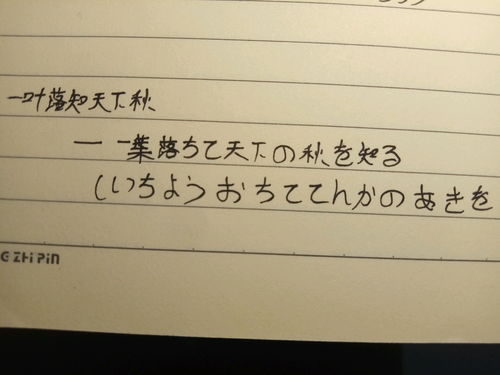 一叶落知天下秋
一 一葉落ちて天下の秋を知る
(いちようおちててんかのあきを
ZHiPin